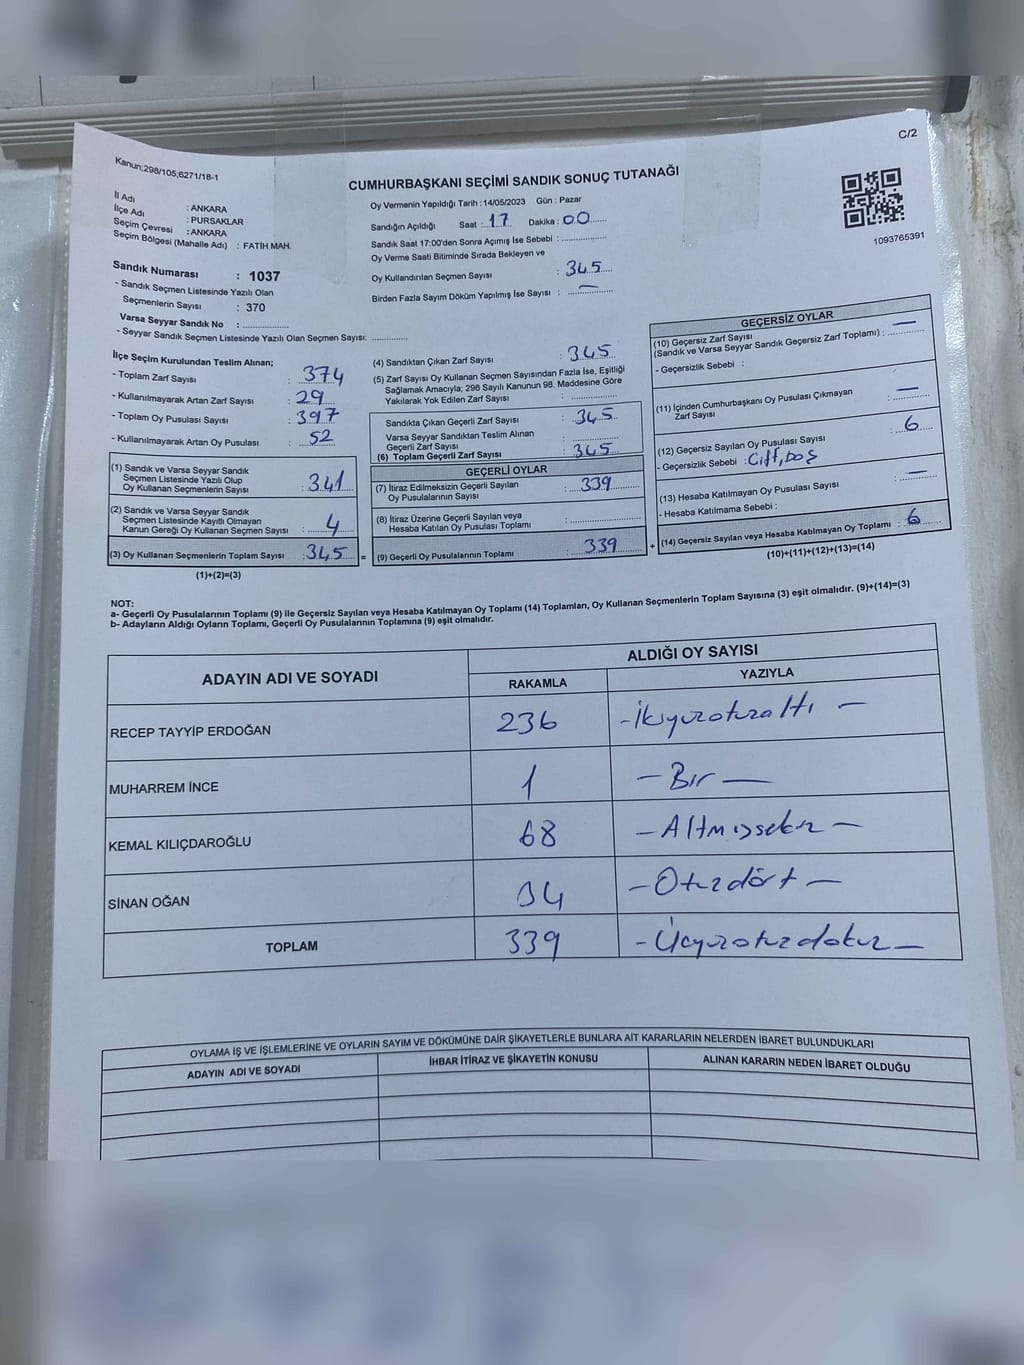 C/2
Kanun;298/105;6271/18-1
CUMHURBAŞKANI SEÇİMİ SANDIK SONUÇ TUTANAĞI
İl Adı : ANKARA
İlçe Adı : PURSAKLAR
Seçim Çevresi : ANKARA
Seçim Bölgesi (Mahalle Adı) : FATİH MAH.
Sandık Numarası : 1037
- Sandık Seçmen Listesinde Yazılı Olan
Seçmenlerin Sayısı : 370
Varsa Seyyar Sandık No : ................
- Seyyar Sandık Seçmen Listesinde Yazılı Olan Seçmen Sayısı: ................
Oy Vermenin Yapıldığı Tarih : 14/05/2023 Gün : Pazar
Sandığın Açıldığı Saat : 17 Dakika : 00
Sandık Saat 17:00'den Sonra Açımış İse Sebebi : ................
Oy Verme Saati Bitiminde Sırada Bekleyen ve
Oy Kullandırılan Seçmen Sayısı : 345
Birden Fazla Sayım Döküm Yapılmış İse Sayısı : —
1093765391
İlçe Seçim Kurulundan Teslim Alınan;
- Toplam Zarf Sayısı : 374
- Kullanılmayarak Artan Zarf Sayısı : 29
- Toplam Oy Pusulası Sayısı : 397
- Kullanılmayarak Artan Oy Pusulası : 52
(1) Sandık ve Varsa Seyyar Sandık
Seçmen Listesinde Yazılı Olup
Oy Kullanan Seçmenlerin Sayısı : 341
(2) Sandık ve Varsa Seyyar Sandık
Seçmen Listesinde Kayıtlı Olmayan
Kanun Gereği Oy Kullanan Seçmen Sayısı : 4
(3) Oy Kullanan Seçmenlerin Toplam Sayısı : 345 =
(1)+(2)=(3)
(4) Sandıktan Çıkan Zarf Sayısı : 345
(5) Zarf Sayısı Oy Kullanan Seçmen Sayısından Fazla İse, Eşitliği
Sağlamak Amacıyla; 298 Sayılı Kanunun 98. Maddesine Göre
Yakılarak Yok Edilen Zarf Sayısı : ................
Sandıkta Çıkan Geçerli Zarf Sayısı : 345
Varsa Seyyar Sandıktan Teslim Alınan
Geçerli Zarf Sayısı : ................
(6) Toplam Geçerli Zarf Sayısı : 345
GEÇERLİ OYLAR
(7) İtiraz Edilmeksizin Geçerli Sayılan
Oy Pusulalarının Sayısı : 339
(8) İtiraz Üzerine Geçerli Sayılan veya
Hesaba Katılan Oy Pusulası Toplamı : ................
(9) Geçerli Oy Pusulalarının Toplamı : 339 +
GEÇERSİZ OYLAR
(10) Geçersiz Zarf Sayısı
(Sandık ve Varsa Seyyar Sandık Geçersiz Zarf Toplamı) : —
- Geçersizlik Sebebi :
(11) İçinden Cumhurbaşkanı Oy Pusulası Çıkmayan
Zarf Sayısı : —
(12) Geçersiz Sayılan Oy Pusulası Sayısı : 6
- Geçersizlik Sebebi : Çift, boş
(13) Hesaba Katılmayan Oy Pusulası Sayısı : —
- Hesaba Katılmama Sebebi :
(14) Geçersiz Sayılan veya Hesaba Katılmayan Oy Toplamı : 6
(10)+(11)+(12)+(13)=(14)
NOT:
a- Geçerli Oy Pusulalarının Toplamı (9) ile Geçersiz Sayılan veya Hesaba Katılmayan Oy Toplamı (14) Toplamları, Oy Kullanan Seçmenlerin Toplam Sayısına (3) eşit olmalıdır. (9)+(14)=(3)
b- Adayların Aldığı Oyların Toplamı, Geçerli Oy Pusulalarının Toplamına (9) eşit olmalıdır.
ADAYIN ADI VE SOYADI ALDIĞI OY SAYISI
RAKAMLA YAZIYLA
RECEP TAYYİP ERDOĞAN 236 -İkiyüzotuzaltı -
MUHARREM İNCE 1 - Bir -
KEMAL KILIÇDAROĞLU 68 - Altmışsekiz -
SİNAN OĞAN 34 - Otuzdört -
TOPLAM 339 - Üçyüzotuzdokuz -
OYLAMA İŞ VE İŞLEMLERİNE VE OYLARIN SAYIM VE DÖKÜMÜNE DAİR ŞİKAYETLERLE BUNLARA AİT KARARLARIN NELERDEN İBARET BULUNDUKLARI
ADAYIN ADI VE SOYADI İHBAR İTİRAZ VE ŞİKAYETİN KONUSU ALINAN KARARIN NEDEN İBARET OLDUĞU